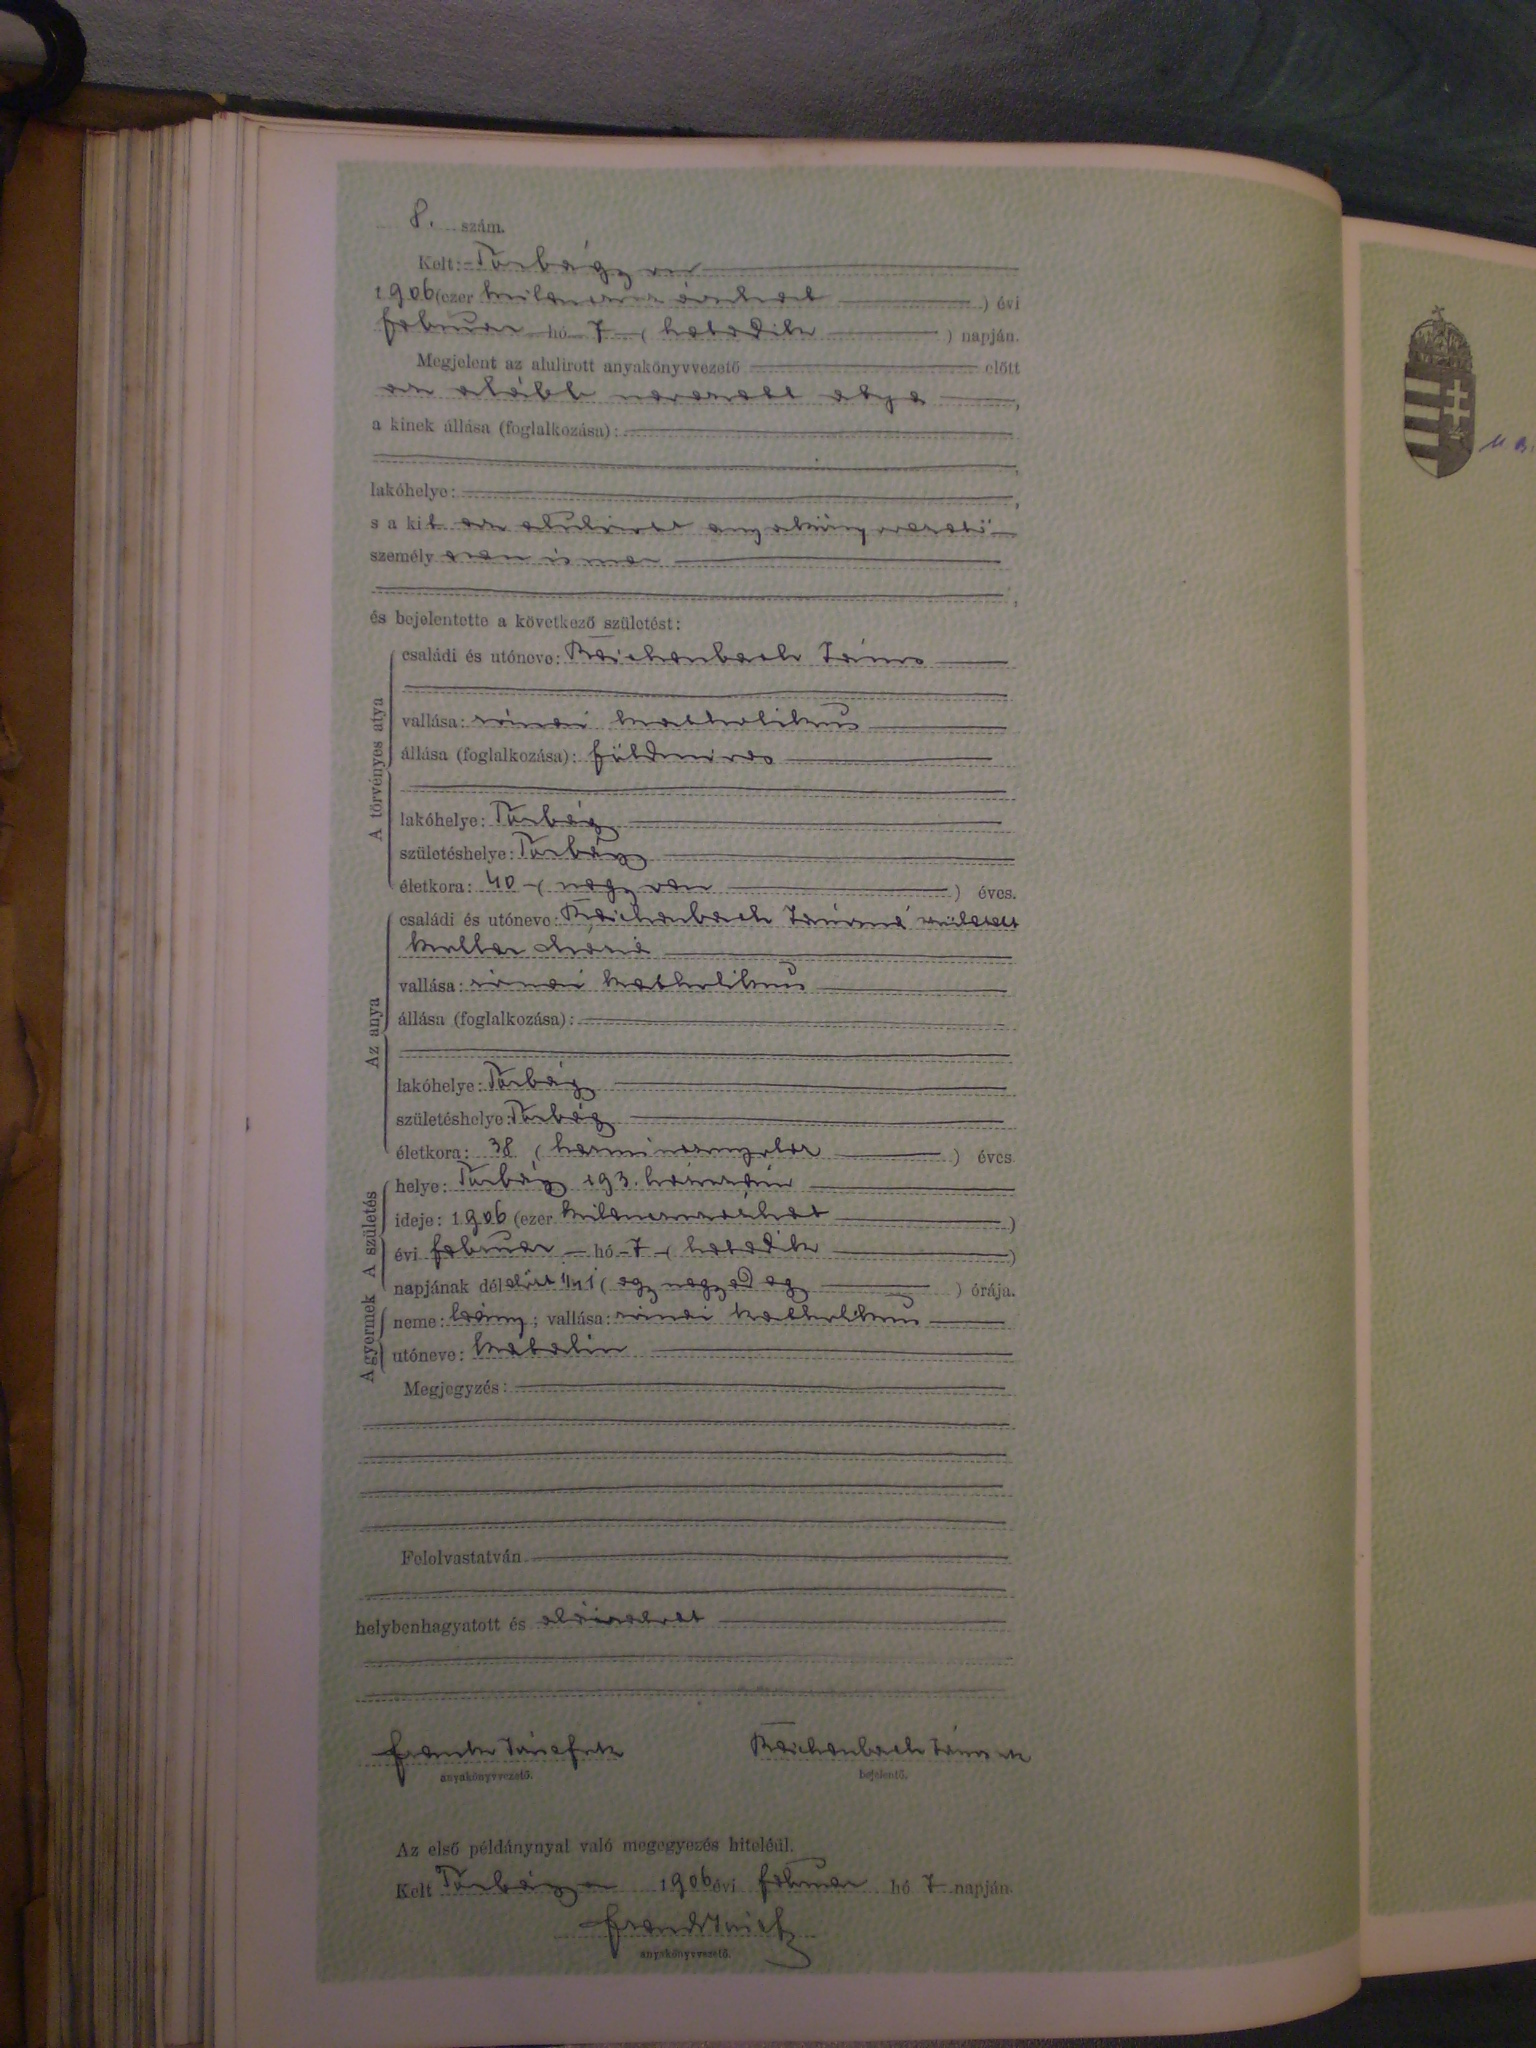 8. szám.
Kelt: Törbágyon
1906 (ezer kilencszázhat ) évi
február hó 7 ( hetedik ) napján.
Megjelent az alulirott anyakönyvvezető előtt
az alább nevezett atya,
a kinek állása (foglalkozása):
lakóhelye:
s a kit az alulirott anyakönyvvezető
személyesen ismer
és bejelentette a következő születést:
A törvényes atya
családi és utóneve: Reichenbach János
vallása: római katholikus
állása (foglalkozása): földmives
lakóhelye: Törbágy
születéshelye: Törbágy
életkora: 40 ( negyven ) éves.
Az anya
családi és utóneve: Reichenbach Jánosné született
Keller Mária
vallása: római katholikus
állása (foglalkozása):
lakóhelye: Törbágy
születéshelye: Törbágy
életkora: 38 ( harmincznyolcz ) éves
A születés
helye: Törbágy 193. házszám
ideje: 1906 (ezer kilencszázhat )
évi február hó 7 ( hetedik )
napjának délelőtt 1/4 1 ( egy negyed egy ) órája.
A gyermek
neme: leány; vallása: római katholikus
utóneve: Katalin
Megjegyzés:
Felolvastatván
helybenhagyatott és aláiratott
Reichenbach János
anyakönyvvezető. bejelentő.
Az első példánynyal való megegyezés hiteléül.
Kelt Törbágyon 1906 évi február hó 7 napján.
anyakönyvvezető.